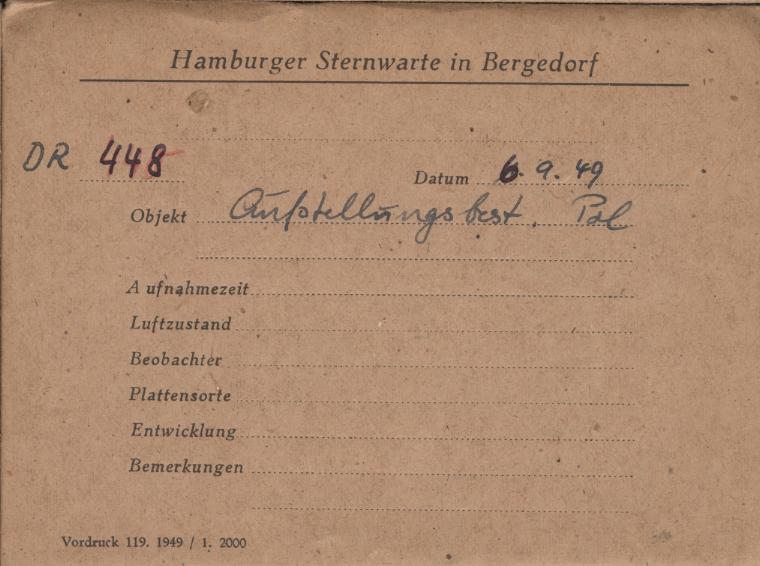 Hamburger Sternwarte in Bergedorf
DR 448
Datum 6. 9. 49
Objekt Aufstellungsbest. Pol
Aufnahmezeit
Luftzustand
Beobachter
Plattensorte
Entwicklung
Bemerkungen
Vordruck 119. 1949 / 1. 2000